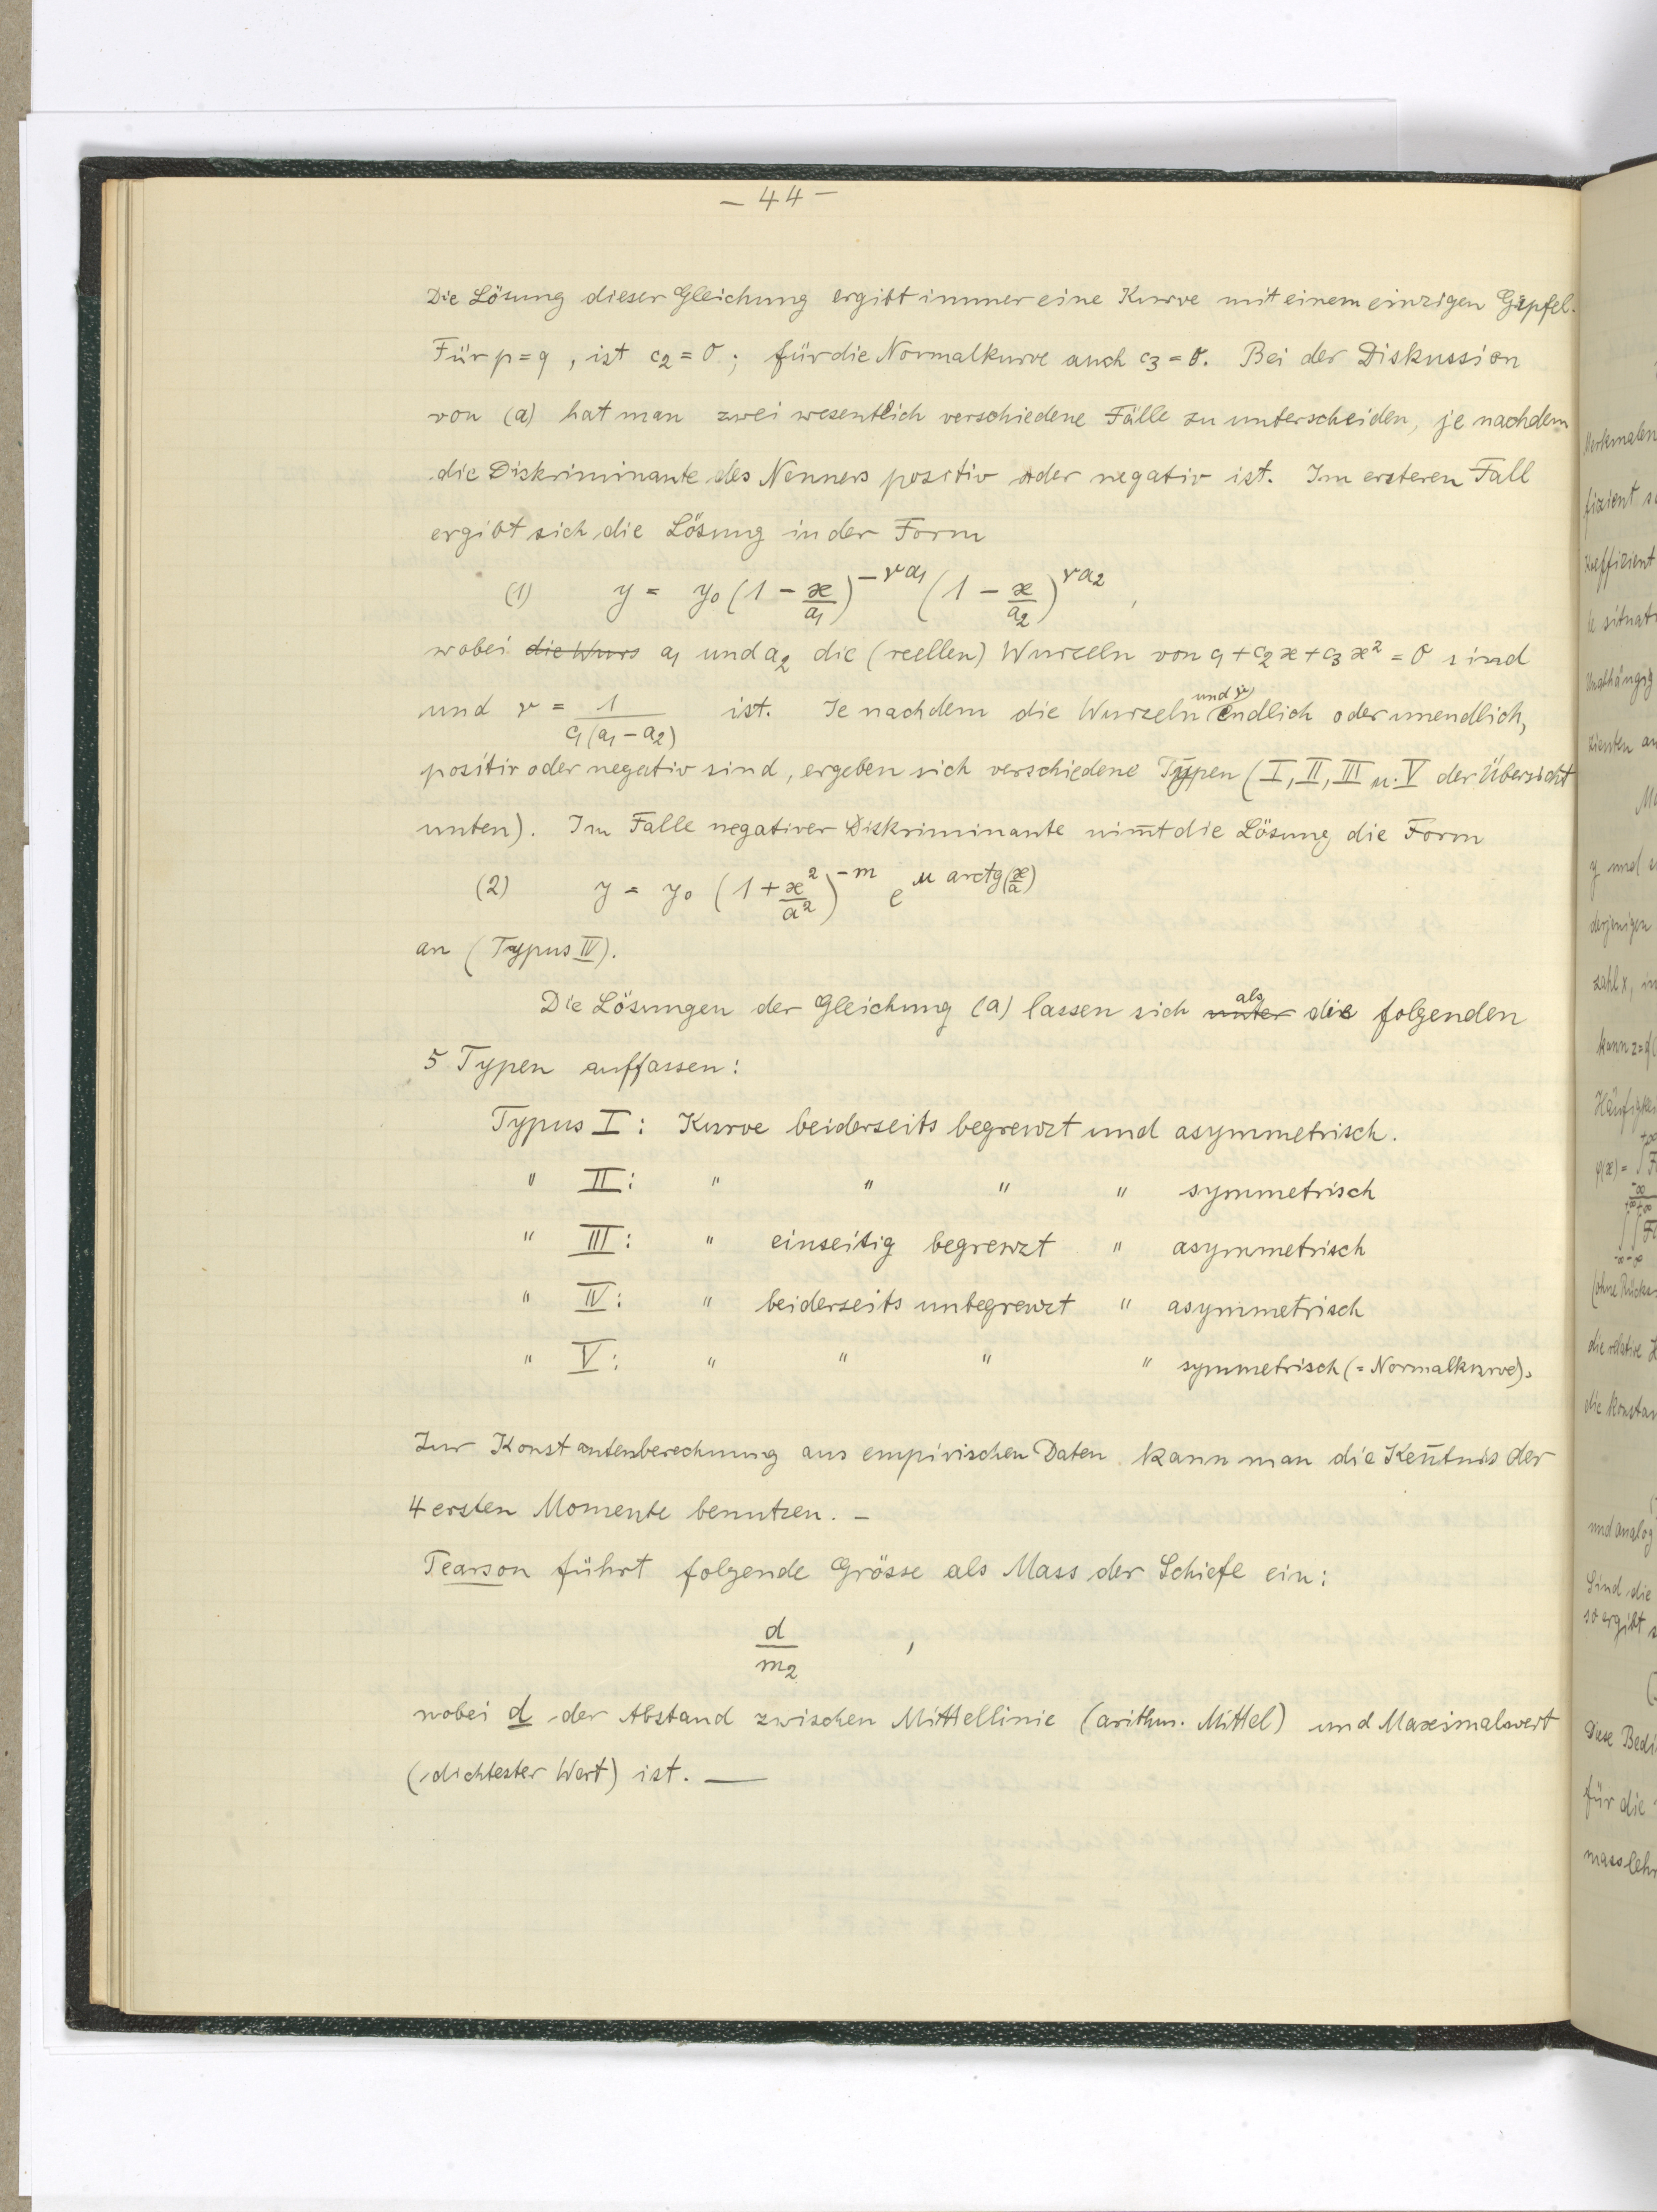 – 44 –
Die Lösung dieser Gleichung ergibt immer eine Kurve mit einem einzigen Gipfel.
Für p = q, ist c₂ = 0; für die Normalkurve auch c₃ = 0. Bei der Diskussion
von (a) hat man zwei wesentlich verschiedene Fälle zu unterscheiden, je nachdem
die Diskriminante des Nenners positiv oder negativ ist. Im ersteren Fall
ergibt sich die Lösung in der Form
(1) y = y₀ (1 – x/a₁)^(–νa₁) (1 – x/a₂)^(νa₂),
wobei die Wurz a₁ und a₂ die (reellen) Wurzeln von c₁ + c₂x + c₃x² = 0 sind
und ν = 1/(c₁(a₁ – a₂)) ist. Je nachdem die Wurzeln und ν endlich oder unendlich,
positiv oder negativ sind, ergeben sich verschiedene Typen (I, II, III u. V der Übersicht
unten). Im Falle negativer Diskriminante nim̄t die Lösung die Form
(2) y = y₀ (1 + x²/a²)^(–m) e^(μ arctg(x/a))
an (Typus IV).
Die Lösungen der Gleichung (a) lassen sich unter als die folgenden
5 Typen auffassen:
Typus I: Kurve beiderseits begrenzt und asymmetrisch.
" II: " " " " symmetrisch
" III: " einseitig begrenzt " asymmetrisch
" IV: " beiderseits unbegrenzt " asymmetrisch
" V: " " " " symmetrisch (= Normalkurve).
Zur Konstantenberechnung aus empirischen Daten kann man die Ken̄tnis der
4 ersten Momente benutzen. –
Pearson führt folgende Grösse als Mass der Schiefe ein:
d/m₂ ,
wobei d der Abstand zwischen Mittellinie (arithm. Mittel) und Maximalwert
(dichtester Wert) ist. —